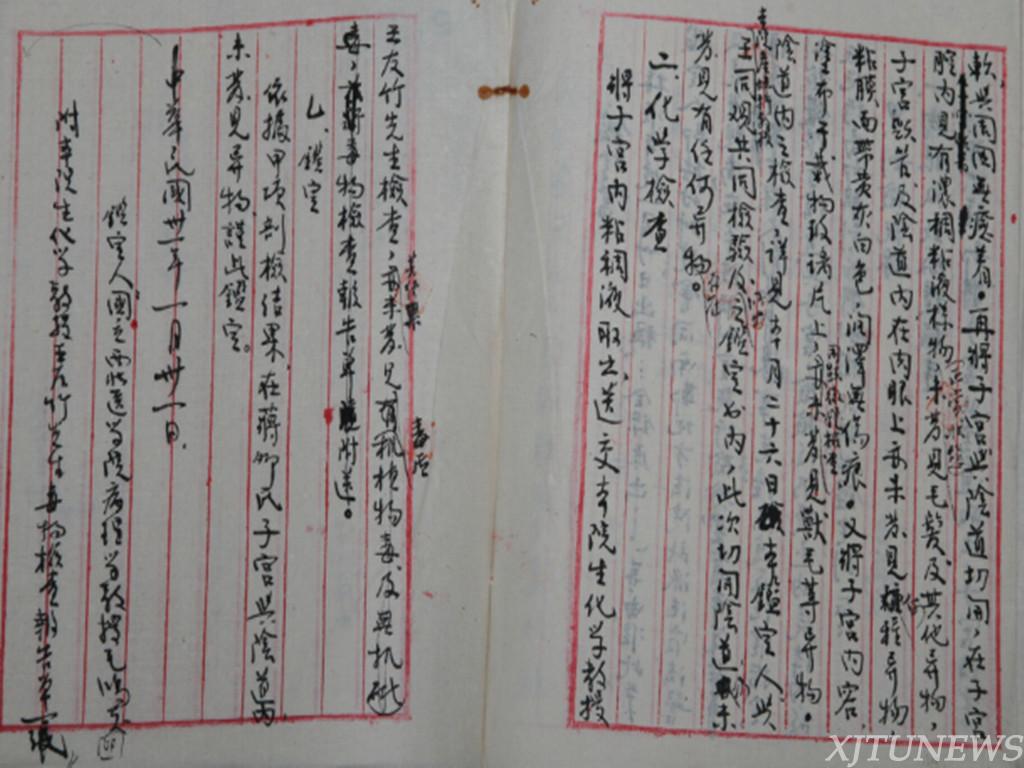 軟，與周圍無癒着。再將子宮與陰道切開，在子宮
腔内見有濃稠粘液樣物，未發見毛髮及其他異物，
子宮頸管及陰道内，在肉眼上亦未發見任何異物，
粘膜面帶黄灰白色，潤澤無傷痕。又將子宮内容，
塗布于載物玻璃片上，亦未發見獸毛等異物。
陰道内之檢查，詳見本年一月二十六日鑑定人與
王同观共同檢驗及鑑定書内，此次切開陰道，亦未
發見有任何異物。
二、化学檢查
將子宮内粘稠液取出，送交本院生化学教授
王友竹先生檢查，亦未發見有機植物毒及無机砒
毒，毒物檢查報告單附送。
乙、鑑定
依據甲項剖檢結果，在蔣卿氏子宮與陰道内
未發見异物，謹此鑑定。
中華民國卅一年一月卅一日
鑑定人國立西北醫学院病理学教授毛鴻志
附本院生化学教授王友竹先生毒物檢查報告單一張
XJTUNEWS